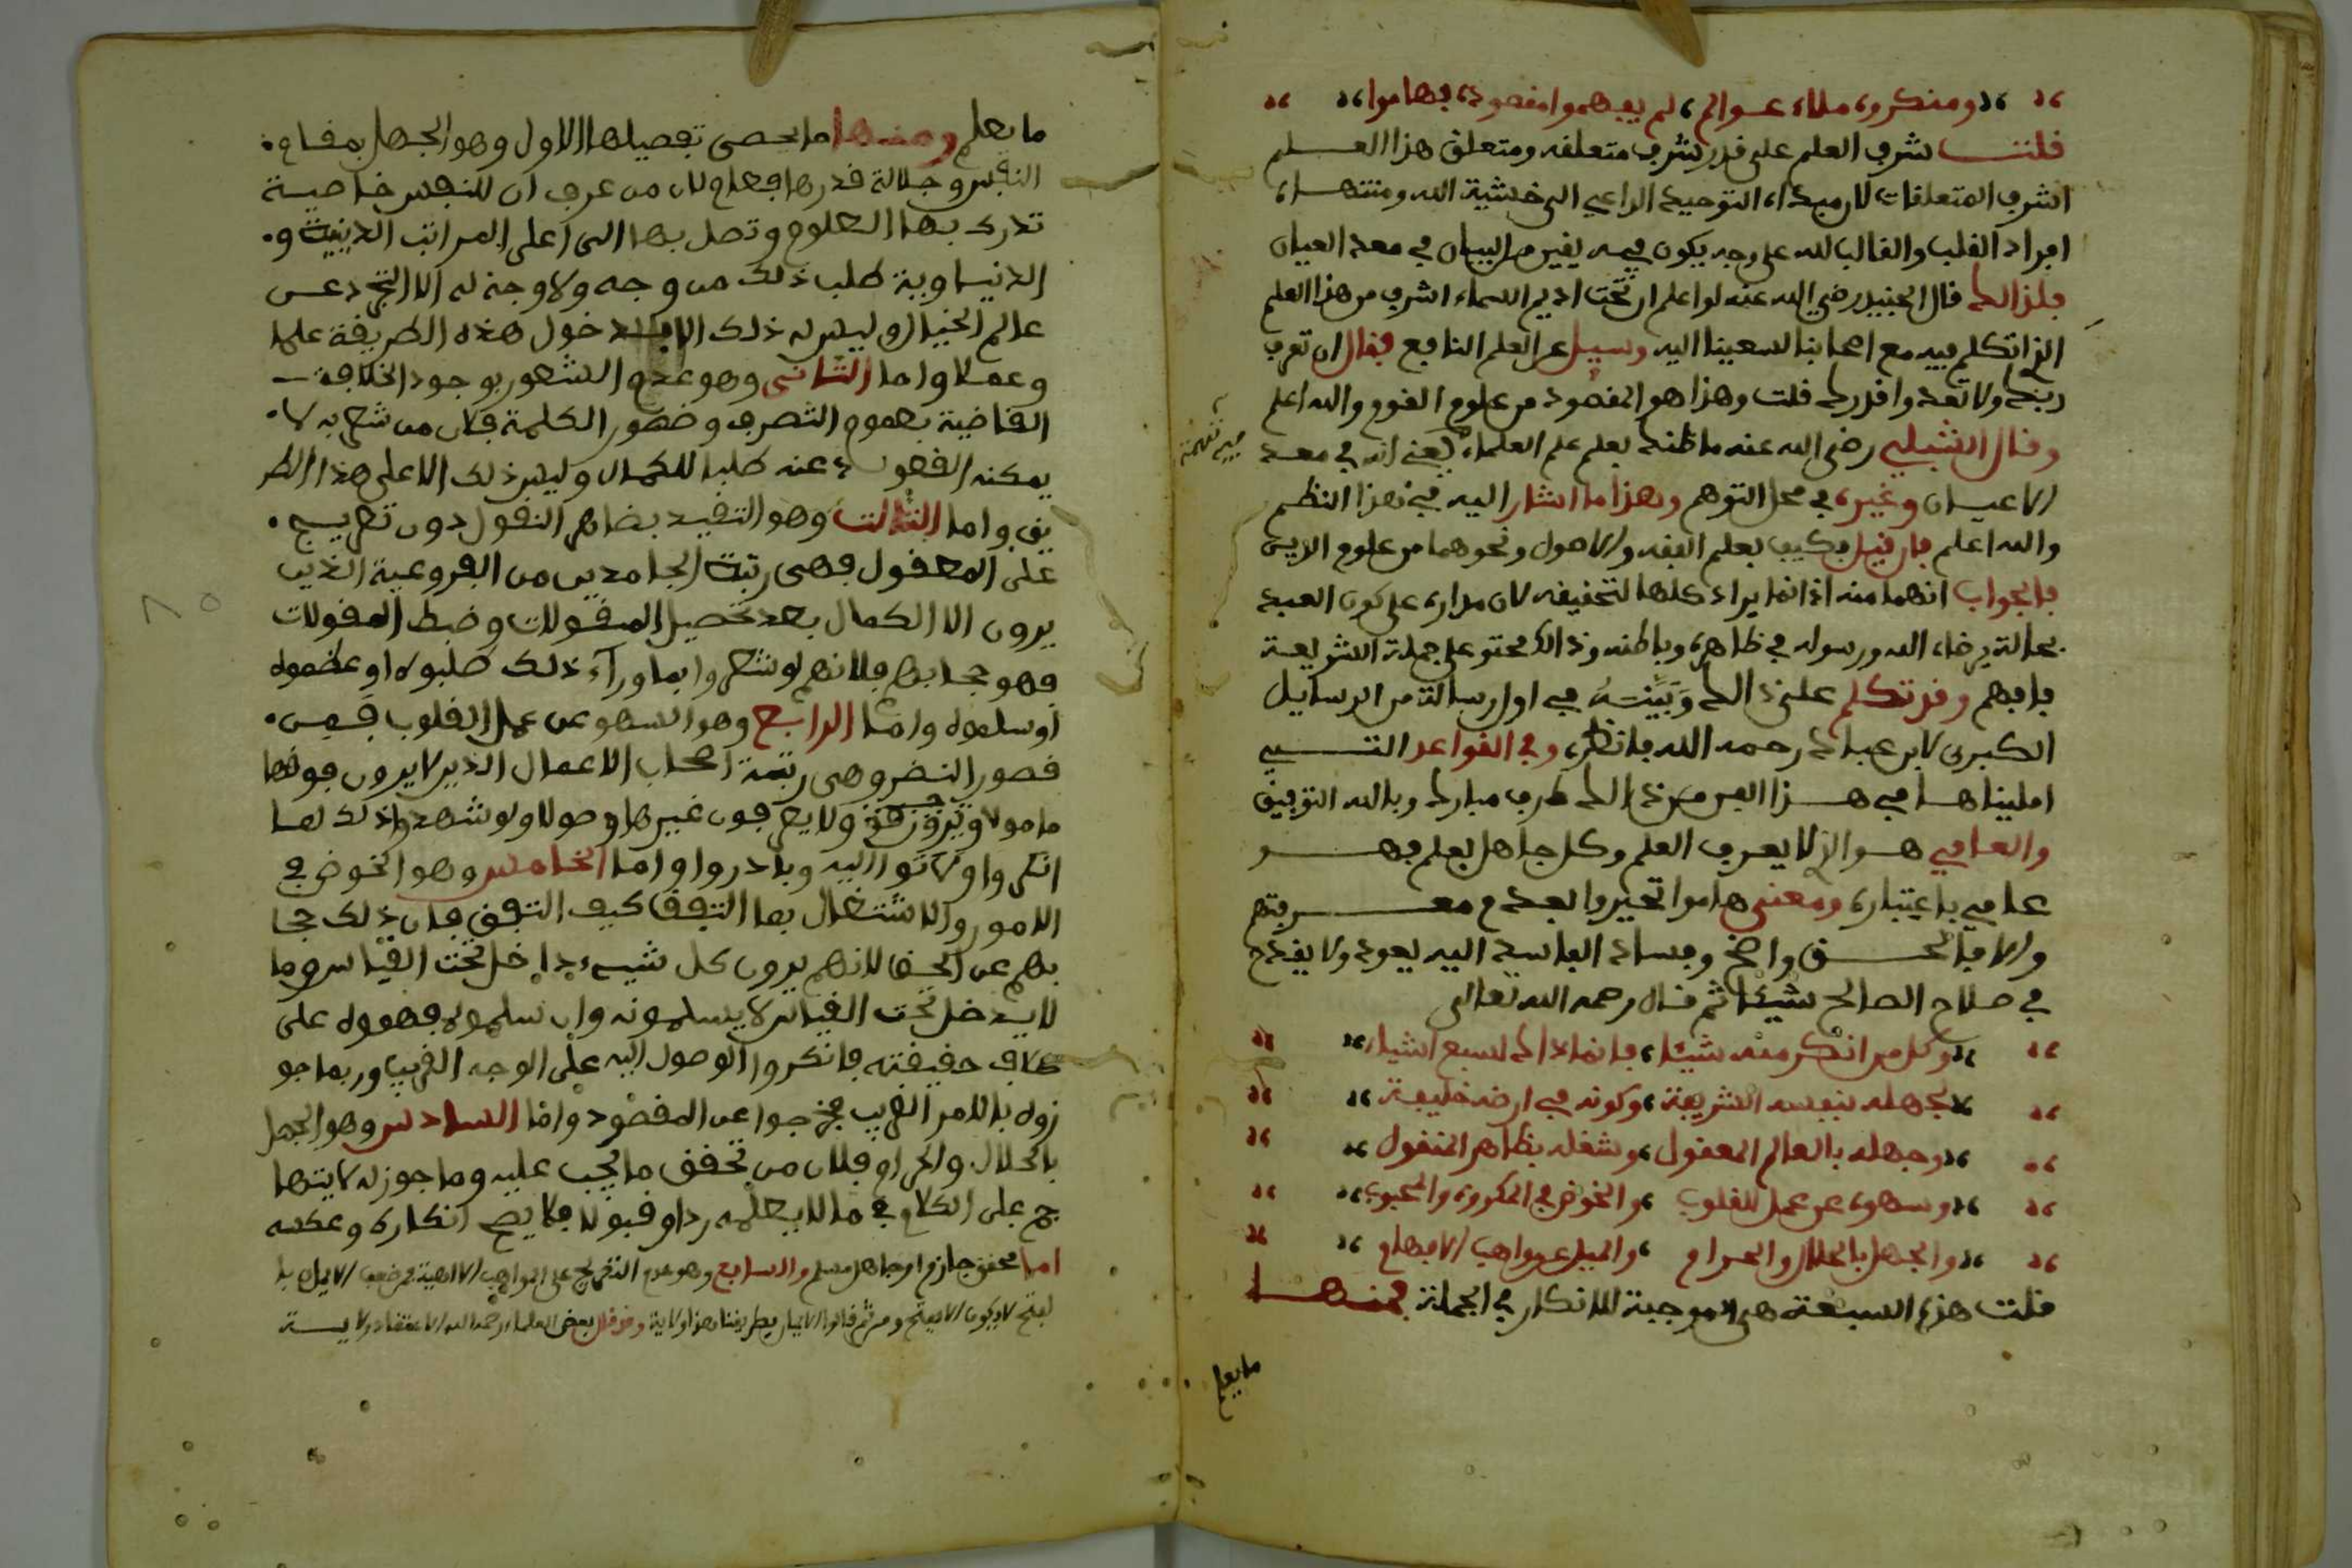 ومنكروه ملاء عوالم، لم يفهموا مقصوده فهاموا
قلت شرف العلم على قدر شرف متعلقه ومتعلق هذا العلم
اشرف المتعلقات لان مبداه التوحيد الداعي الى خشية الله ومنتهاه
افراد القلب والقالب لله على وجه يكون فيه يقين من البيان في معد العيان
فلذالك قال الجنيد رضي الله عنه لو اعلم ان تحت اديم السماء اشرف من هذا العلم
الذي اتكلم فيه مع اصحابنا لسعينا اليه وسيل عن العلم النافع فقال ان تعرف
ربك ولا تعد وا قدرك قلت وهذا هو المقصود من علوم القوم والله اعلم
وقال الشبلي رضي الله عنه ما ظنك بعلم علم العلماء فيه تهمة يعني انه في معد
الاعيان وغيره في محل التوهم وهذا ما اشار اليه في هذا النظم
والله اعلم فان قيل فكيف بعلم الفقه والاصول ونحوهما من علوم الدين
فالجواب انهما منه اذ انما يراد كلها لتحقيقه لان مداره على كون العبد
بحالة يرضاه الله ورسوله في ظاهره وباطنه وذالك محتو على جملة الشريعة
فافهم وقد تكلم على ذالك وبينه في اول رسالة من الرسايل
الكبرى لابن عباد رحمه الله فانظره وفي القواعد التي
امليناها في هذا الفن من ذالك طرف مبارك وبالله التوفيق
والعامي هو الذي لا يعرف العلم وكل جاهل بعلم فهو
عامي باعتباره ومعنى هاموا تحيروا بعدم معرفتهم
والا فالحق واضح وفساد الفاسد اليه يعود ولا يقدح
في صلاح الصالح شيئا ثم قال رحمه الله تعالى
وكل من انكر منه شيئا، فانما ذاك لسبع اشياء
لجهله بنفسه الشريفة، وكونه في ارضه خليفة
وجهله بالعالم المعقول، وشغله بظاهر المنقول
وسهوه عن عمل القلوب، والخوض في المكروه والمحبوب
والجهل بالحلال والحرام، والميل عن مواهب الافهام
قلت هذه السبعة هي الموجبة للانكار في الجملة فمنها
ما يعلم
ما يعلم ومنها ما يحصى تفصيلها الاول وهو الجهل بمقام
النفس وجلالة قدرها فعلام لان من عرف ان للنفس خاصية
تدرك بها العلوم وتصل بها الى اعلى المراتب الدينية و
الدنياوية طلب ذلك من وجه ولا وجه له الا التجرد عن
عالم الخيال وليس له ذلك الا بدخول هذه الطريقة علما
وعملا واما الثاني وهو عدم الشعور بوجود الخلافة
القاضية بعموم التصرف وحضور الكلمة فلان من شعر به لا
يمكنه القعود عنه طلبا للكمال وليس ذلك الا على هذا الطر
يق واما الثالث وهو التقيد بظاهر النقول دون تعريج
على المعقول فهي رتبة الجامدين من الفروعية الذين
يرون الا الكمال بعد تحصيل المنقولات وضبط المقولات
فهو حجابهم فلانهم لو شعروا بما وراء ذلك طلبوه او عظموه
او سلموه واما الرابع وهو السهو عن عمل القلوب فمن
قصور النضر وهي رتبة اصحاب الاعمال الذين لا يرون فوقها
مامولا ولا يعرفون غيرها وصولا ولو شهدوا ذلك لما
انكروا ولاتوا اليه وبادروا واما الخامس وهو الخوض في
الامور والاشتغال بما التفق كيف التفق فان ذلك حجا
بهم عن الحق لانهم يرون كل شيء داخل تحت القياس وما
لا يدخل تحت القياس لا يسلمونه وان سلموه فهموه على
خلاف حقيقته فانكروا الوصول اليه على الوجه الغريب وربما جو
زوه بالامر الغريب فخرجوا عن المقصود واما السادس وهو الجهل
بالحلال والحرام فلان من تحقق ما يجب عليه وما جوز له لا يتها
جم على الكلام في ما لا يعلمه ردا وقبولا فلا يصح انكاره وعكسه
اما محقق جازم او جاهل مسلم والسابع وهو عدم التعريج على المواهب الالاهية فمن ضعف الايمان با
لفتح لا يكون الا بفتح ومن ثم قالوا الايمان بطريقتنا هذا ولاية وقد قال بعض العلماء رحمه الله الاعتقاد ولاية